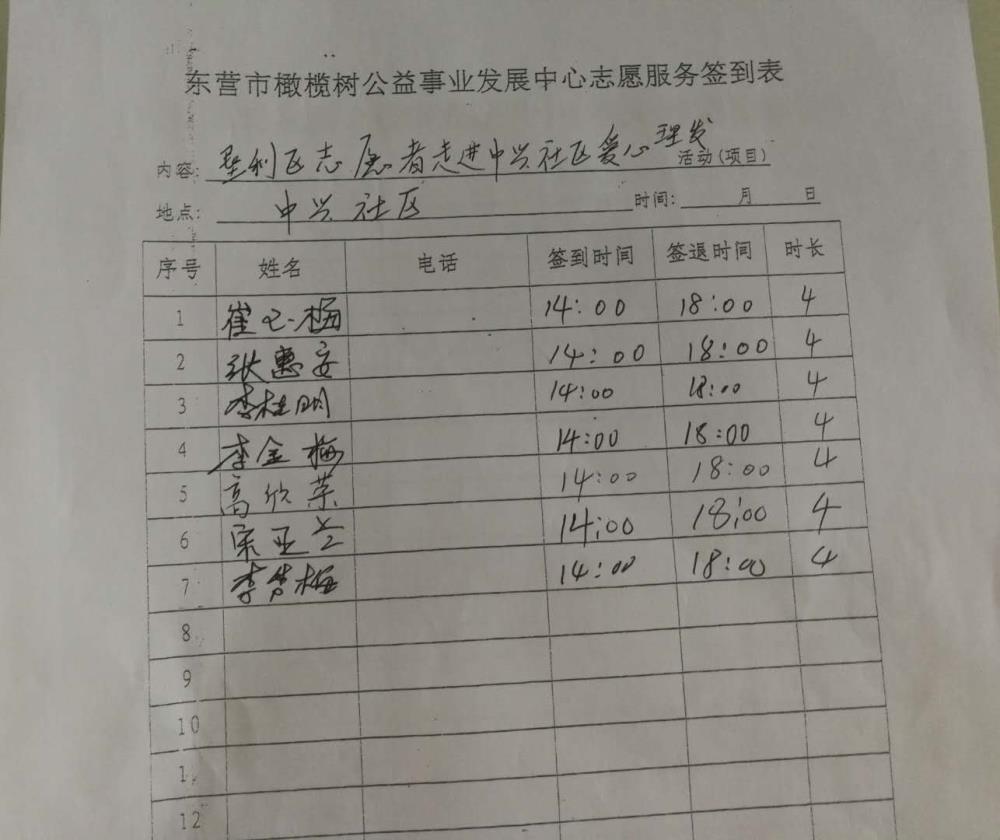 东营市橄榄树公益事业发展中心志愿服务签到表
内容：垦利区志愿者走进中兴社区爱心理发活动(项目)
地点：中兴社区 时间： 月 日
序号 姓名 电话 签到时间 签退时间 时长
1 崔 梅 14:00 18:00 4
2 张惠安 14:00 18:00 4
3 李桂明 14:00 18:00 4
4 李金梅 14:00 18:00 4
5 高欣荣 14:00 18:00 4
6 宋亚兰 14:00 18:00 4
7 李 梅 14:00 18:00 4
8
9
10
1
12